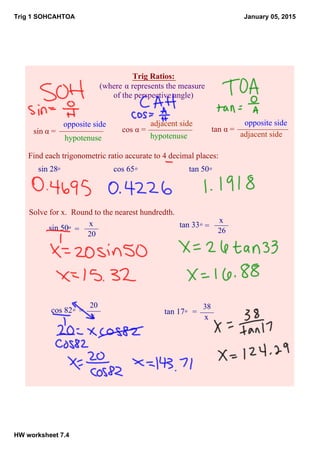 Trig 1 SOHCAHTOA January 05, 2015
Trig Ratios:
(where α represents the measure
of the perspective angle)
SOH sin = O/H
CAH cos = A/H
TOA tan = O/A
sin α = opposite side / hypotenuse
cos α = adjacent side / hypotenuse
tan α = opposite side / adjacent side
Find each trigonometric ratio accurate to 4 decimal places:
sin 28° cos 65° tan 50°
0.4695 0.4226 1.1918
Solve for x. Round to the nearest hundredth.
sin 50° / 1 = x / 20
x = 20 sin50
x = 15.32
tan 33° = x / 26
x = 26 tan33
x = 16.88
cos 82° / 1 = 20
20 = x cos82
cos82
x = 20 / cos82 x = 143.71
tan 17° = 38 / x
x = 38 / tan17
x = 124.29
HW worksheet 7.4